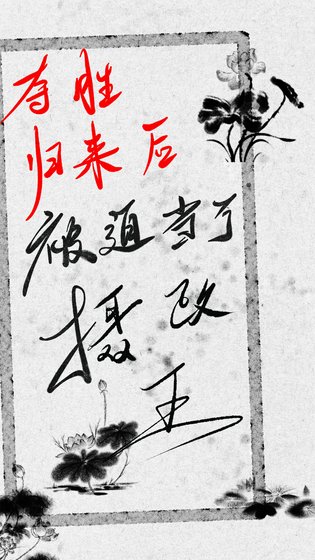 夺胜
归来后
被迫当了
摄政
王